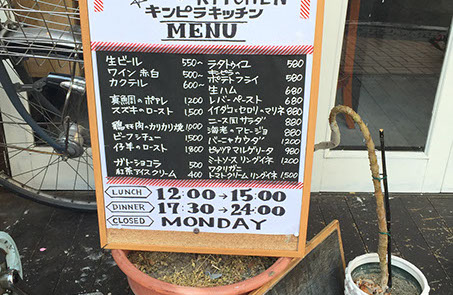 KITCHEN
キンピラキッチン
MENU
生ビール 550〜
ワイン 赤白 500〜
カクテル 600〜
真鯛のポワレ 1700
スズキのロースト 1500
鶏もも肉のカリカリ焼 1000
ビーフシチュー 1500
仔羊のロースト 1800
ガトーショコラ 500
紅茶アイスクリーム 400
ラタトゥイユ 580
キンピラ
ポテトフライ 580
生ハム 680
レバーペースト 680
イイダコとセロリのマリネ 780
ニース風サラダ 880
海老のアヒージョ 880
バーニャカウダ 1200
ピッツァマルゲリータ 980
ミートソースリングイネ 1200
アマトリチャーナ
トマトクリームリングイネ 1500
LUNCH 12:00→15:00
DINNER 17:30→24:00
CLOSED MONDAY